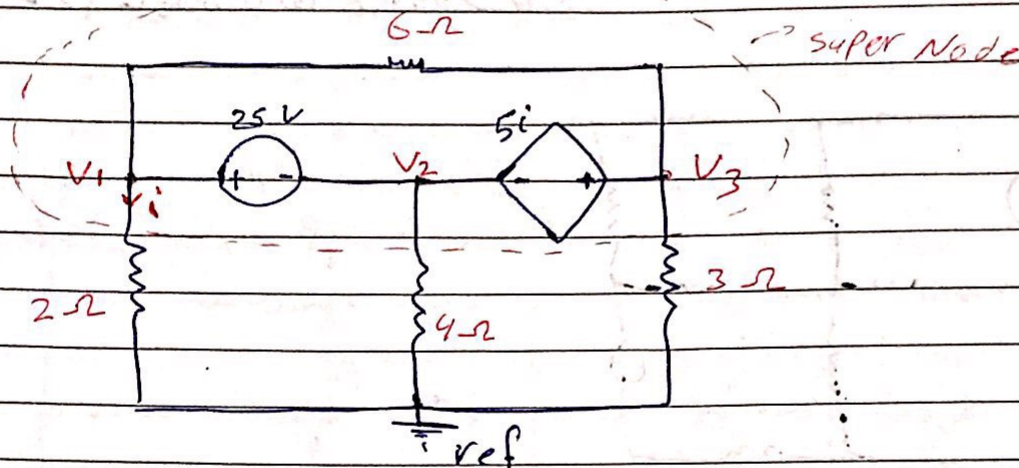 6Ω
super Node
25 V
5i
V1
+ -
V2
- +
V3
i
2Ω
4Ω
3Ω
ref